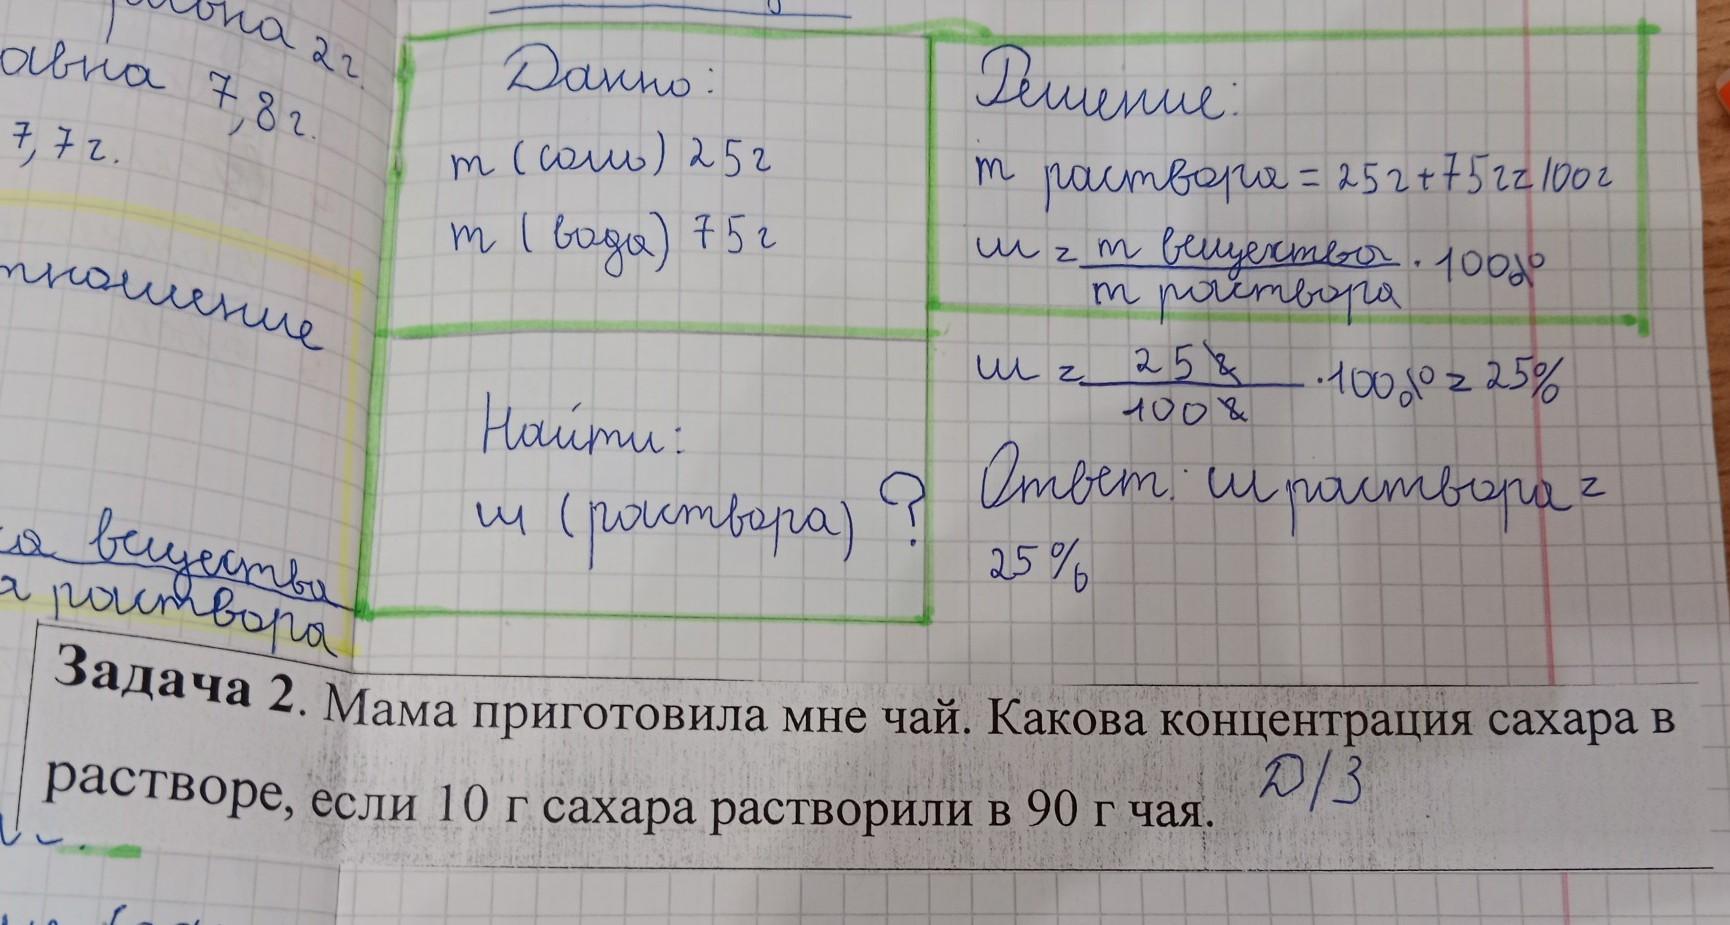 2г.
авна 7,8г.
7,7г.
тношение
вещества
раствора
Данно:
m (соль) 25г
m (вода) 75г
Найти:
ш (раствора) ?
Решение:
m раствора = 25г+75г=100г
ш = m вещества / m раствора · 100%
ш = 25г / 100г · 100% = 25%
Ответ: ш раствора =
25%
Задача 2. Мама приготовила мне чай. Какова концентрация сахара в
растворе, если 10 г сахара растворили в 90 г чая. Д/З